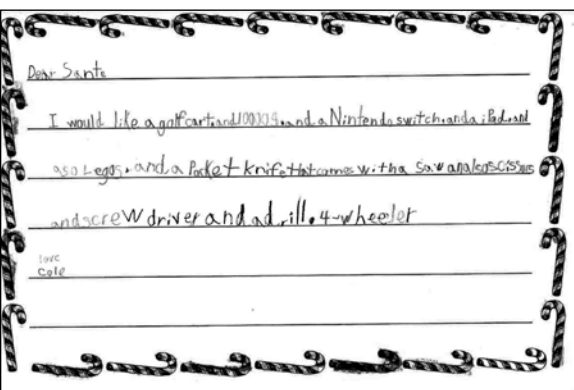 Dear Santa
I would like a golfcart.and 100004.and a Nintendo switch.and a iPad.and
aso Legos.and a Pocket knife.that comes with a saw an alsos scissors
and screw driver and a drill.4-wheeler
love
Cole